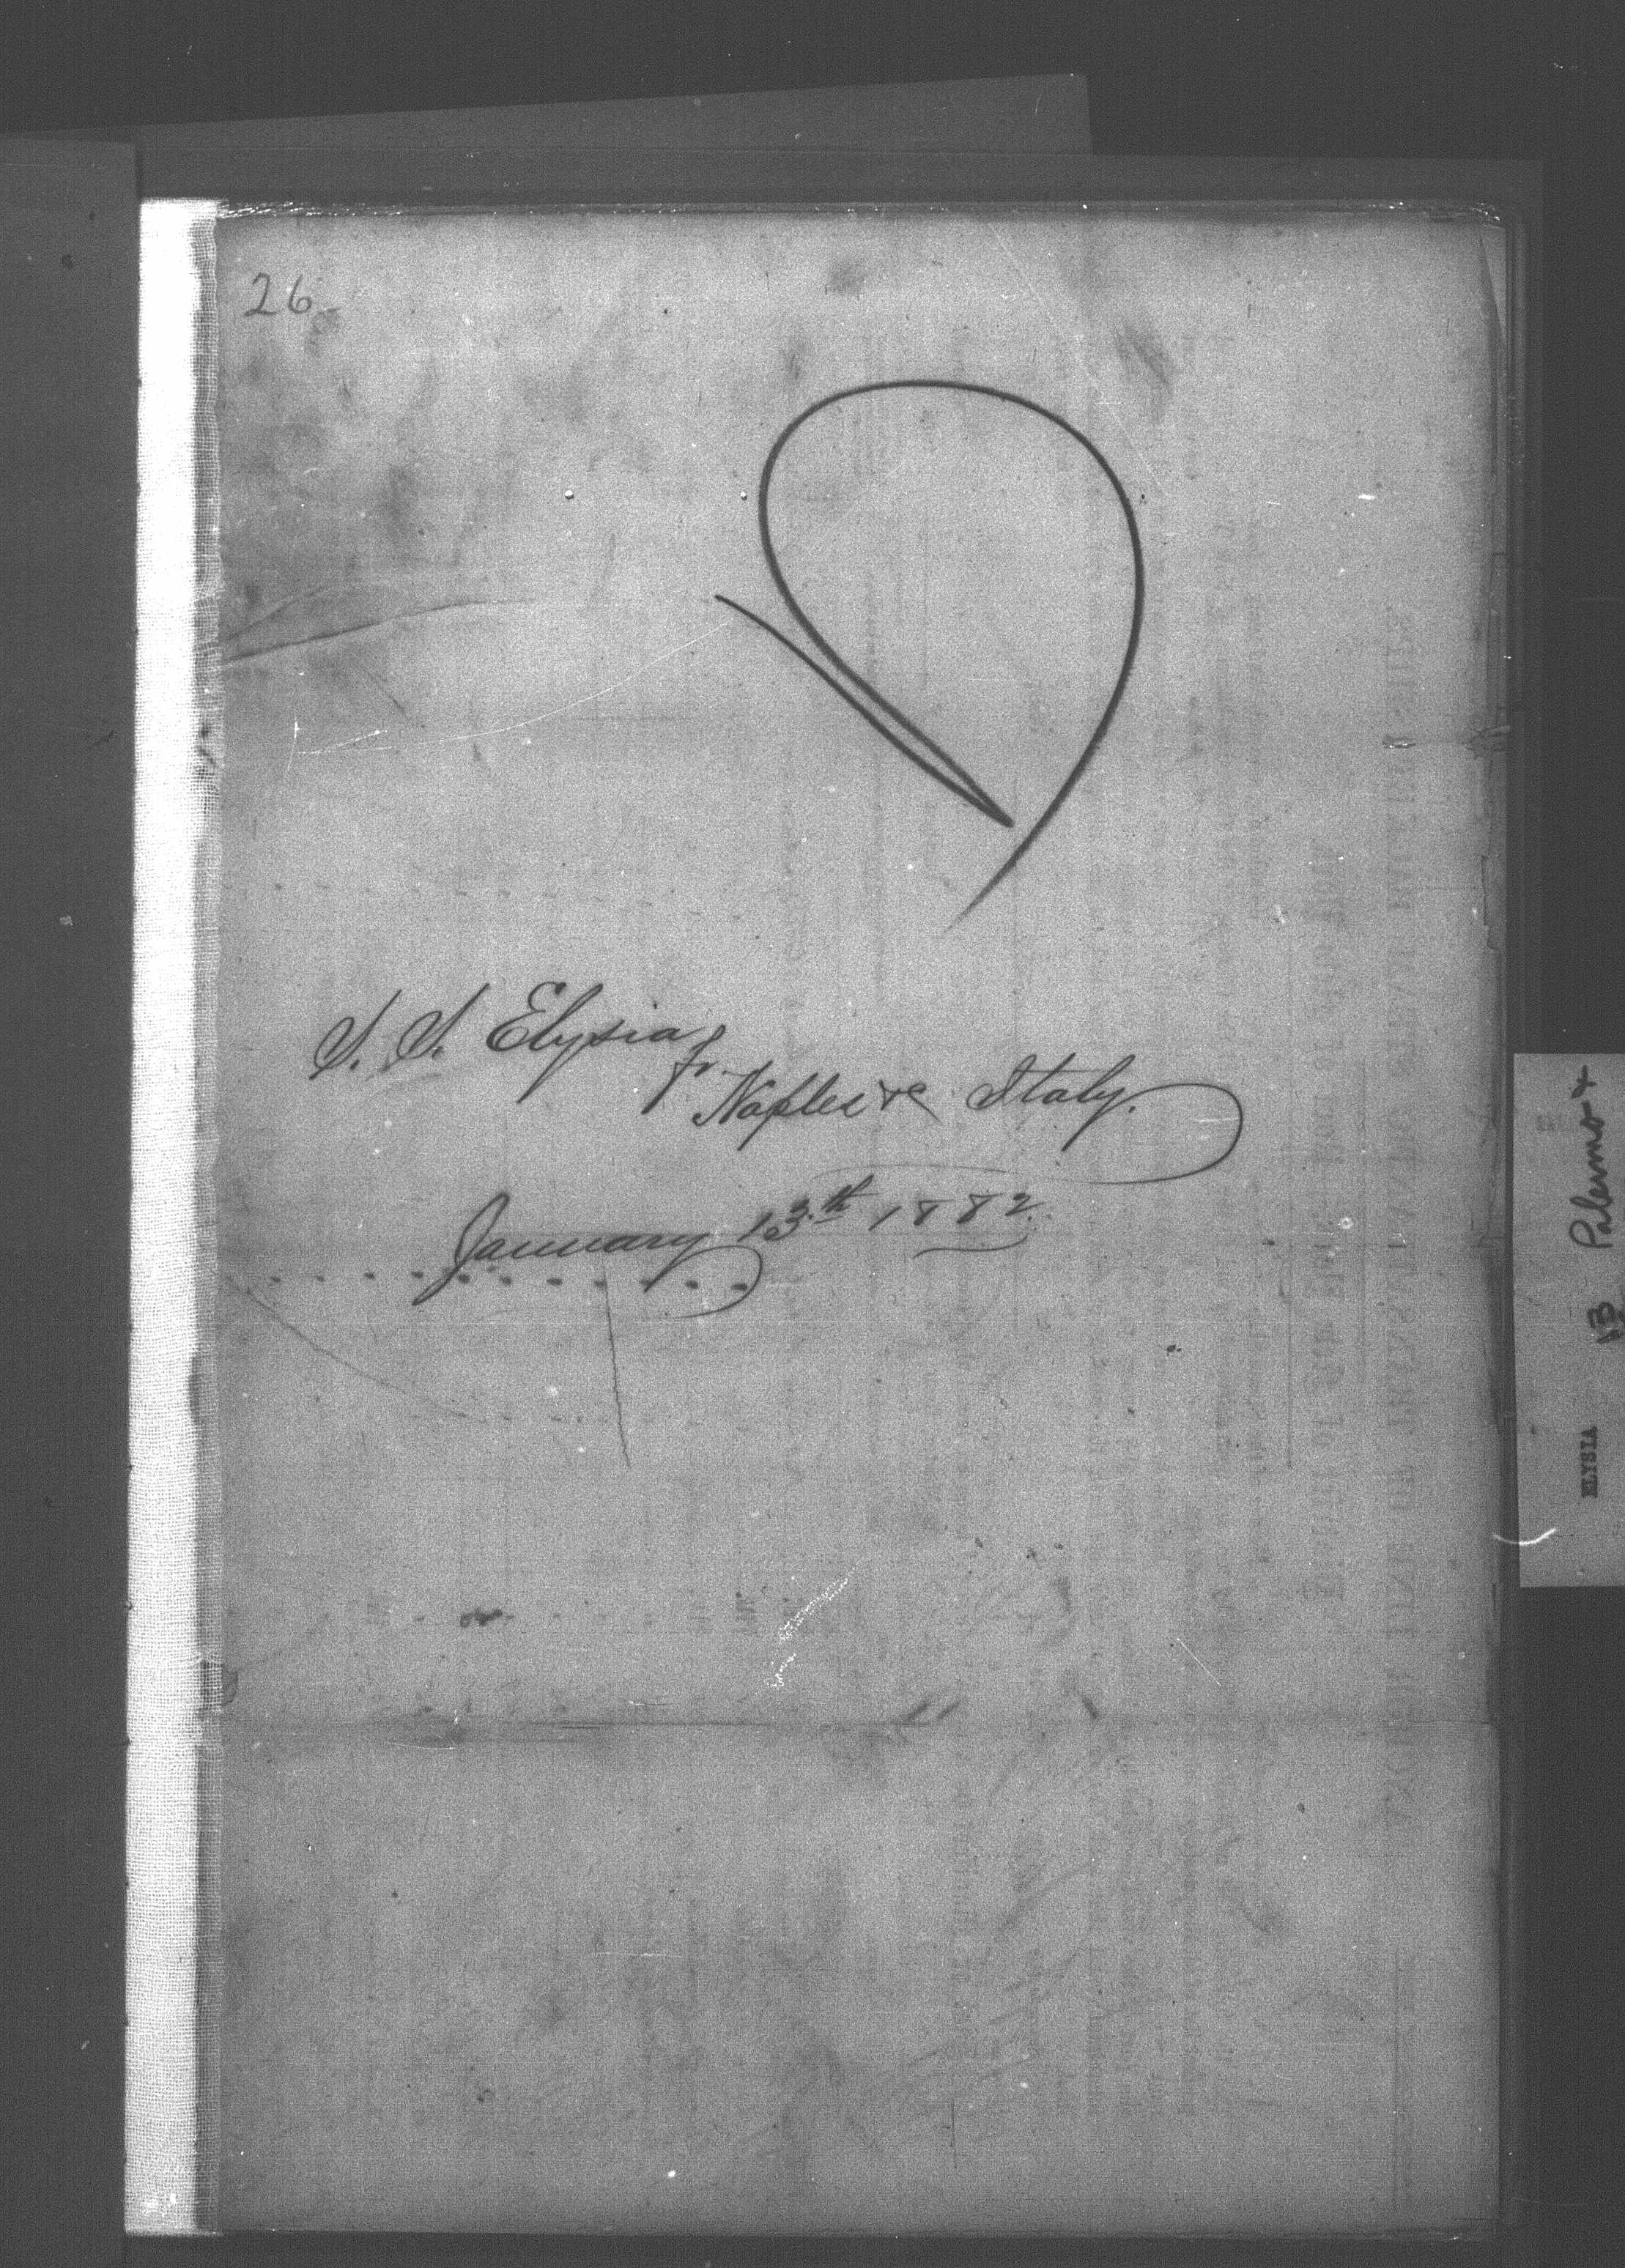 26
S. S. Elysia
fr.
Naples &c Italy.
January 13th 1882.
ELYSIA 13 Palermo +